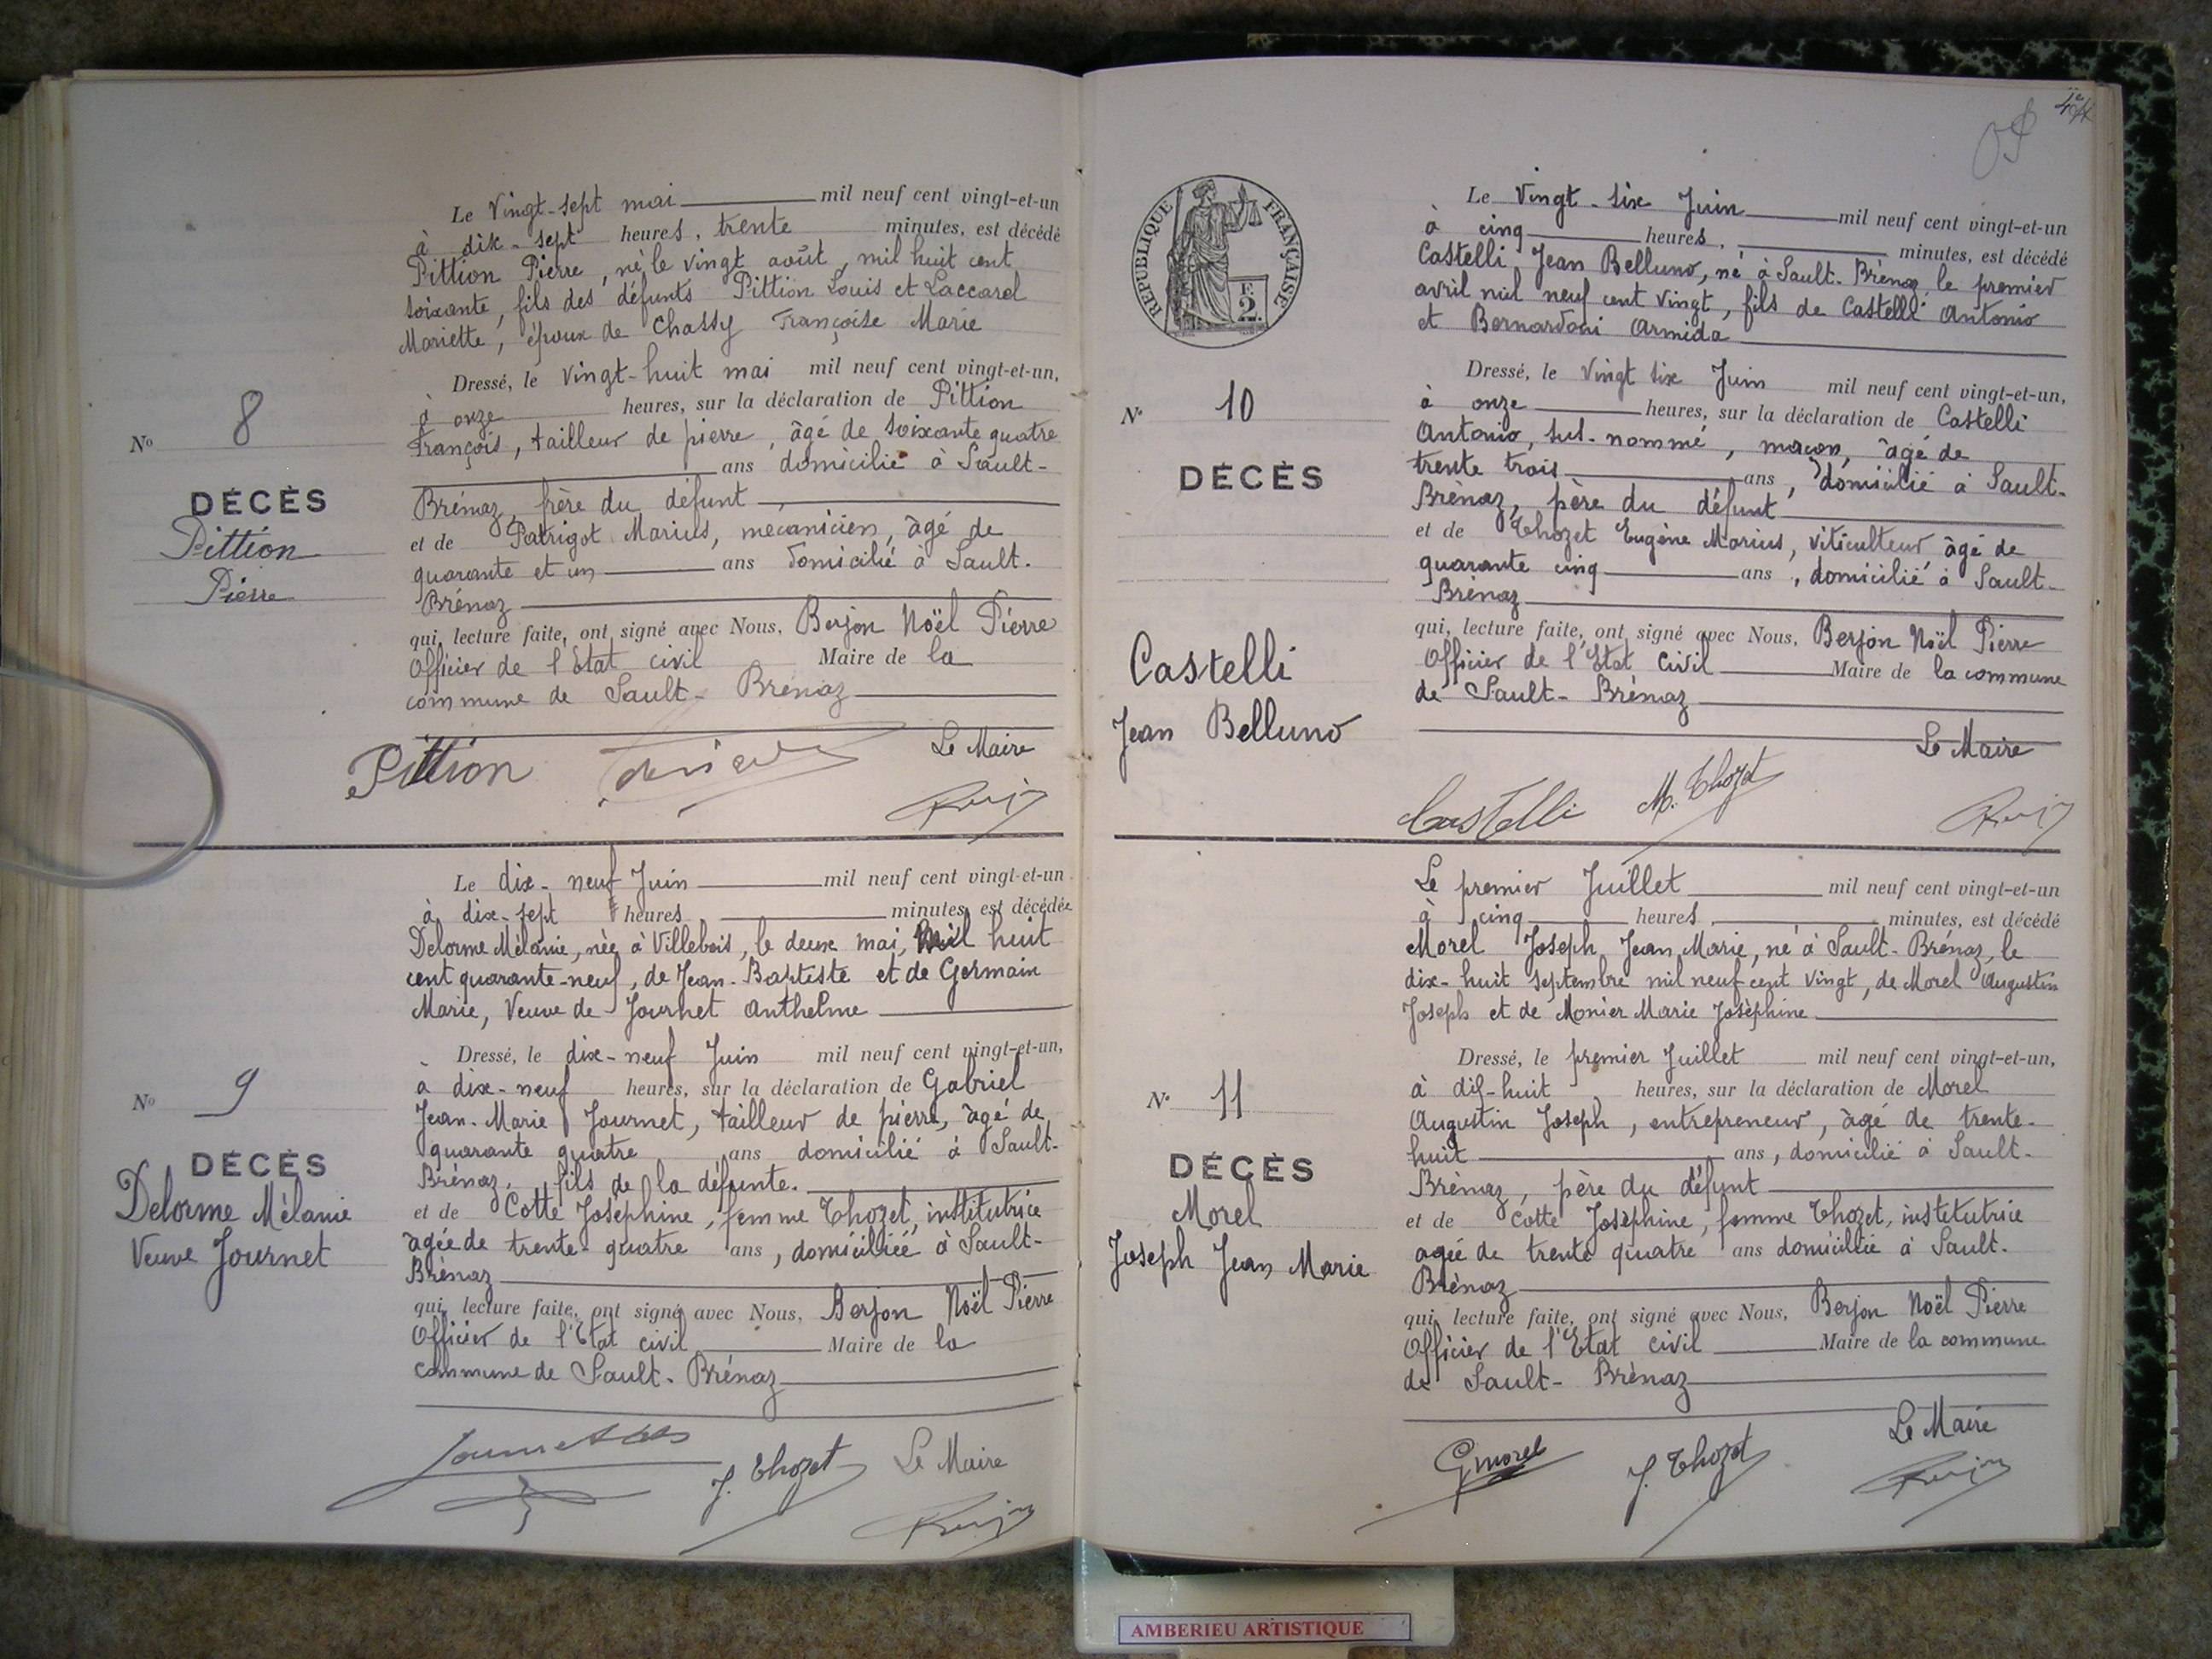 Le Vingt-sept mai mil neuf cent vingt-et-un
à dix-sept heures, trente minutes, est décédé
Pittion Pierre, né le vingt août, mil huit cent
soixante, fils des défunts Pittion Louis et Laccard
Mariette, époux de Chassy Françoise Marie
Dressé, le vingt-huit mai mil neuf cent vingt-et-un,
à onze heures, sur la déclaration de Pittion
François, tailleur de pierre, âgé de soixante quatre
ans domicilié à Sault-
Brénaz, frère du défunt,
et de Patrigot Marius, mecanicien, âgé de
quarante et un ans domicilié à Sault-
Brénaz
qui, lecture faite, ont signé avec Nous, Berjon Noël Pierre
Officier de l'Etat civil Maire de la
commune de Sault-Brénaz
No 8
DÉCÈS
Pittion
Pierre
Le Maire
Pittion
Le dix-neuf Juin mil neuf cent vingt-et-un
à dix-sept heures minutes, est décédée
Delorme Mélanie, née à Villebois, le deux mai, mil huit
cent quarante-neuf, de Jean-Baptiste et de Germain
Marie, Veuve de Journet Anthelme
Dressé, le dix-neuf Juin mil neuf cent vingt-et-un,
à dix-neuf heures, sur la déclaration de Gabriel
Jean-Marie Journet, tailleur de pierre, âgé de
quarante quatre ans domicilié à Sault-
Brénaz, fils de la défunte.
et de Cotte Joséphine, femme Thozet, institutrice
âgée de trente-quatre ans, domiciliée à Sault-
Brénaz
qui, lecture faite, ont signé avec Nous, Berjon Noël Pierre
Officier de l'Etat civil Maire de la
commune de Sault-Brénaz
No 9
DÉCÈS
Delorme Mélanie
Veuve Journet
J. Thozet Le Maire
RÉPUBLIQUE FRANÇAISE
F.
2.
Le Vingt-six Juin mil neuf cent vingt-et-un
à cinq heures, minutes, est décédé
Castelli Jean Belluno, né à Sault-Brénaz le premier
avril mil neuf cent vingt, fils de Castelli Antonio
et Bernardoni Armida
Dressé, le Vingt six Juin mil neuf cent vingt-et-un,
à onze heures, sur la déclaration de Castelli
Antonio, sus-nommé, maçon, âgé de
trente trois ans, domicilié à Sault-
Brénaz, père du défunt
et de Thozet Eugène Marius, viticulteur, âgé de
quarante cinq ans, domicilié à Sault-
Brénaz
qui, lecture faite, ont signé avec Nous, Berjon Noël Pierre
Officier de l'Etat civil Maire de la commune
de Sault-Brénaz
No 10
DÉCÈS
Castelli
Jean Belluno
Le Maire
Castelli M. Thozet
Le premier Juillet mil neuf cent vingt-et-un
à cinq heures, minutes, est décédé
Morel Joseph Jean Marie, né à Sault-Brénaz, le
dix-huit septembre mil neuf cent vingt, de Morel Augustin
Joseph et de Monier Marie Joséphine
Dressé, le premier Juillet mil neuf cent vingt-et-un,
à dix-huit heures, sur la déclaration de Morel
Augustin Joseph, entrepreneur, âgé de trente-
huit ans, domicilié à Sault-
Brénaz, père du défunt
et de Cotte Joséphine, femme Thozet, institutrice
agée de trente quatre ans domicillié à Sault-
Brénaz
qui, lecture faite, ont signé avec Nous, Berjon Noël Pierre
Officier de l'Etat civil Maire de la commune
de Sault-Brénaz
No 11
DÉCÈS
Morel
Joseph Jean Marie
Le Maire
Gmorel J. Thozet
AMBERIEU ARTISTIQUE